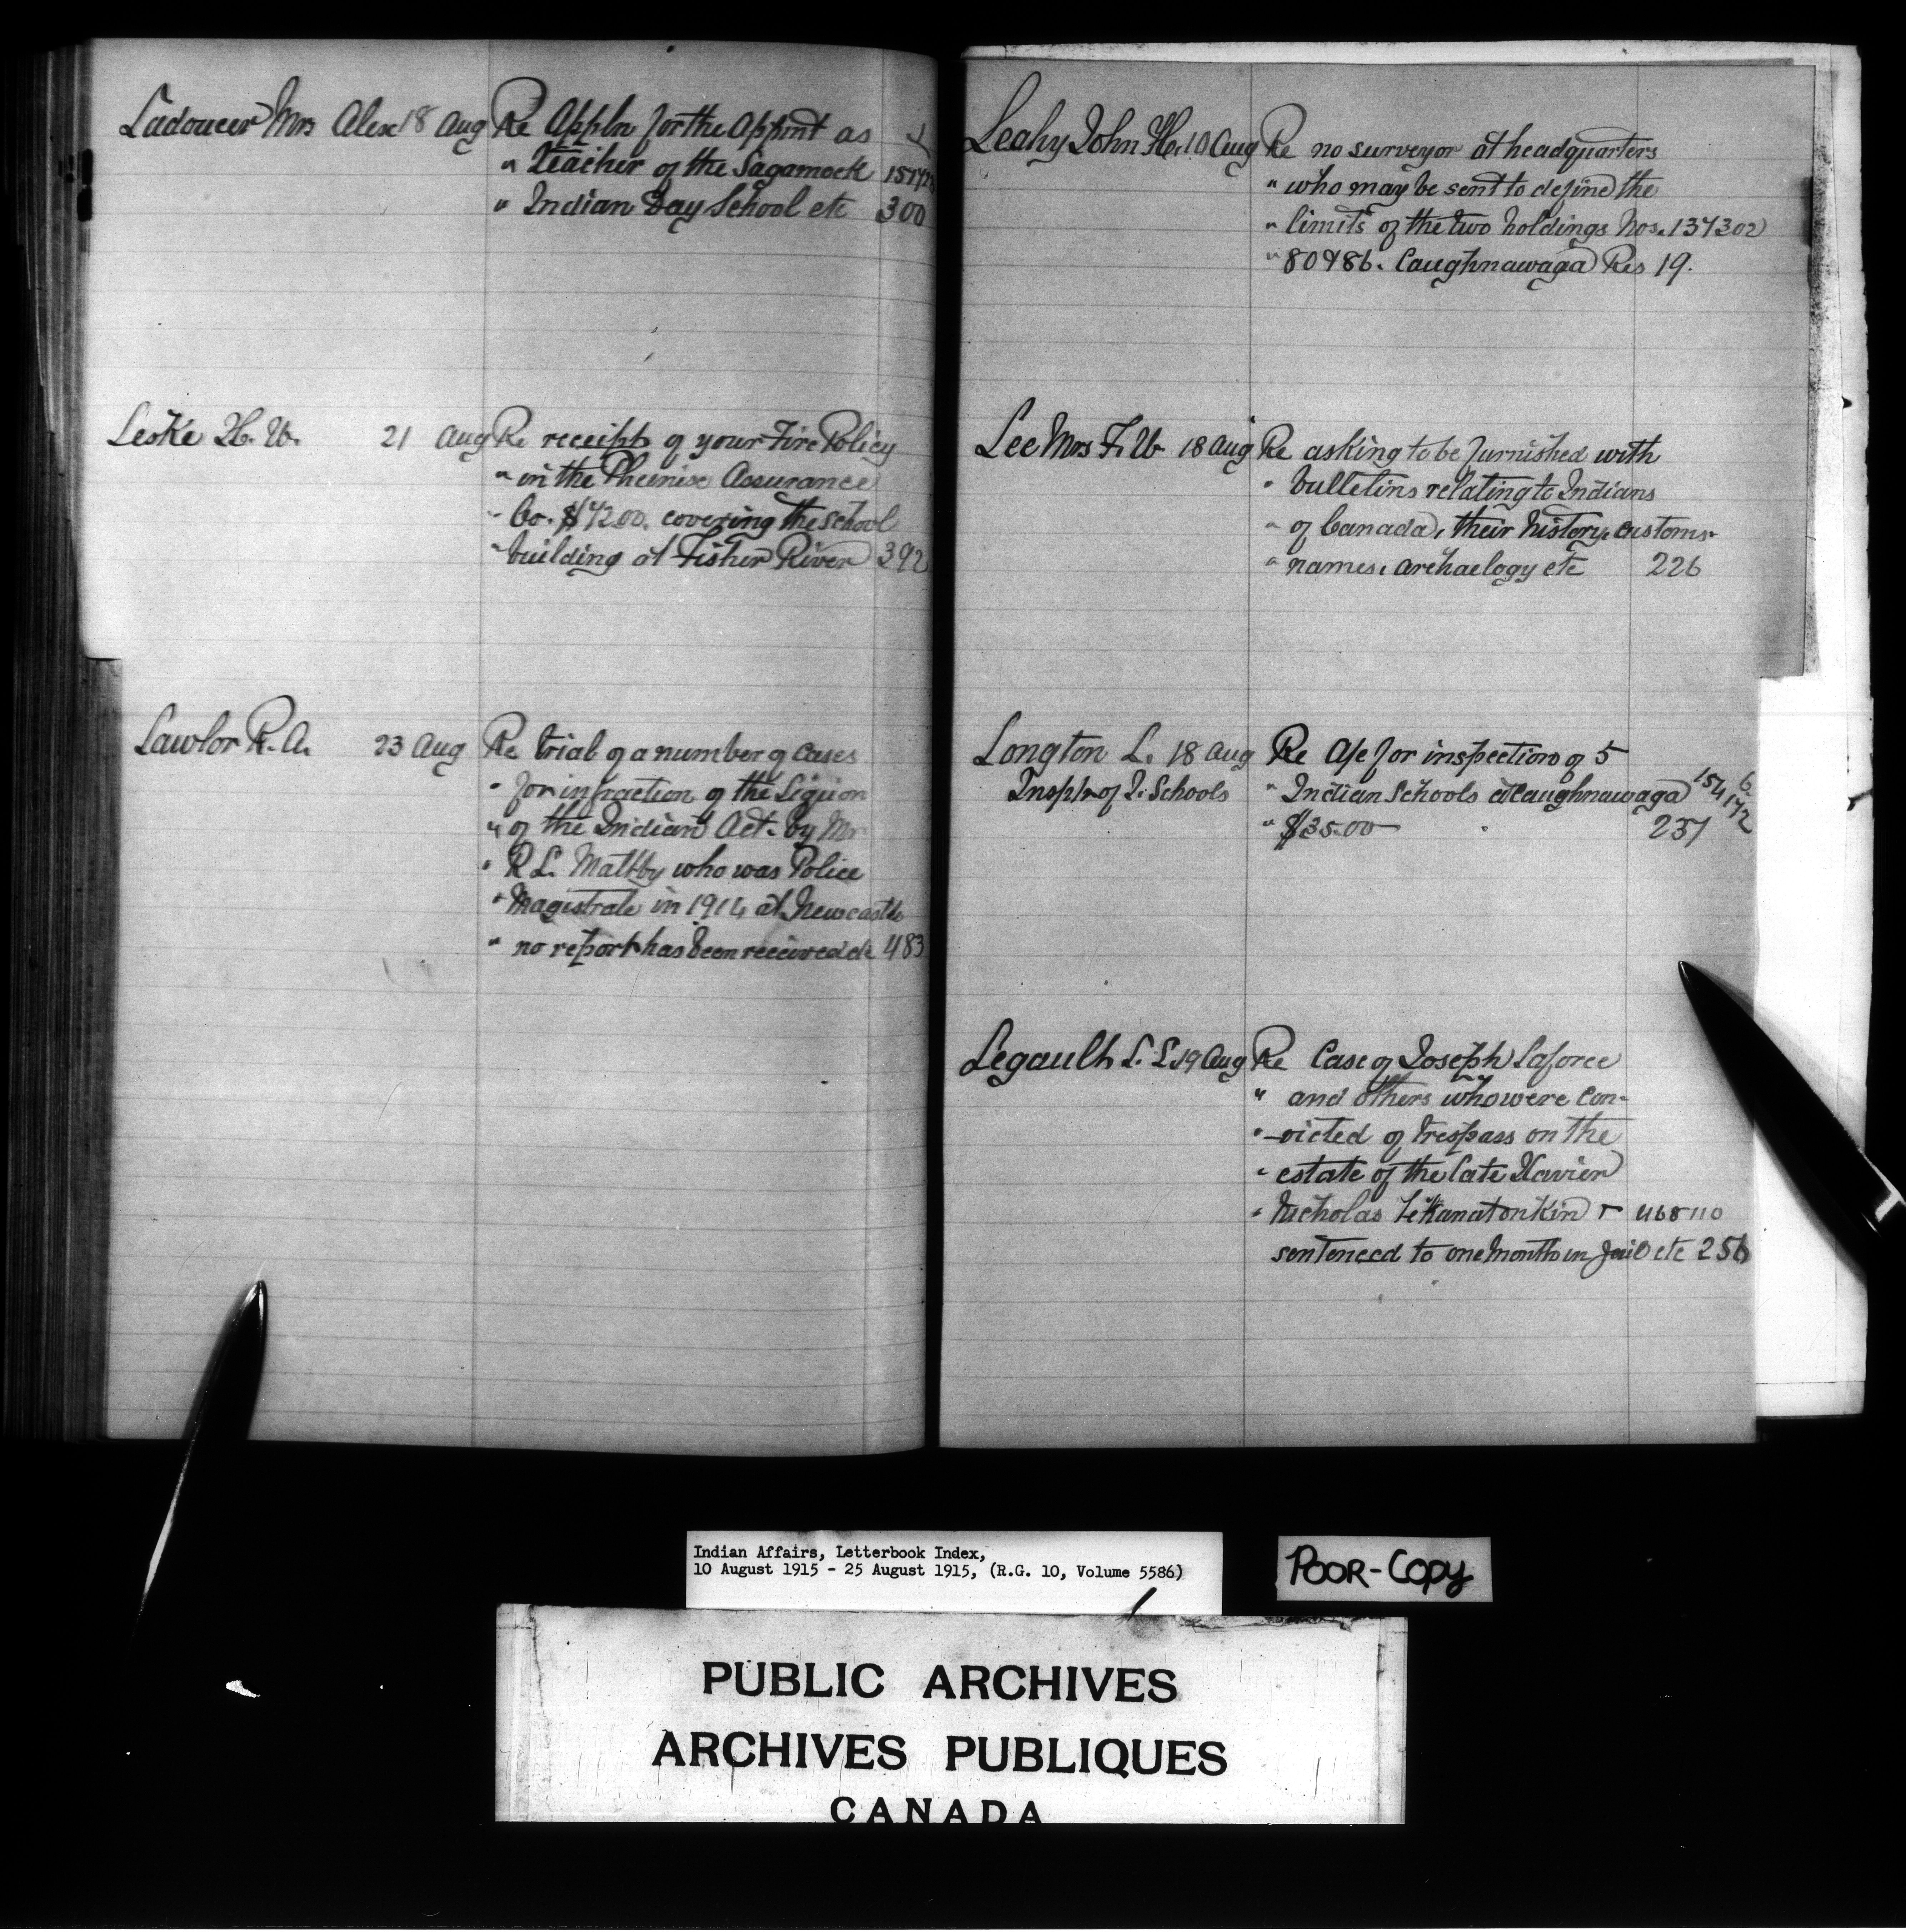 Ladoucer Mrs Alex 18 Aug Re Appln for the Appmt as
" teacher of the Sagamook
" Indian Day School etc 300
Leske H. W. 21 Aug Re receipt of your Fire Policy
" in the Pheinix Assurance
" Co. $ covering the school
" building at Fisher River 392
Lawlor R. A. 23 Aug Re trial of a number of cases
" for infraction of the Liquor
" of the Indian Act. by Mr
" R L. Maltby who was Police
" Magistrate in 1914 at Newcastle
" no report has been received etc 483
Leahy John H. 10 Aug Re no surveyor at headquarters
" who may be sent to define the
" limits of the two holdings Nos. 137302
" 80986. Caughnawaga Res 19.
Lee Mrs F. W 18 Aug Re asking to be furnished with
" bulletins relating to Indians
" of Canada, their history, customs.
" names, archaelogy etc 226
Longton L. 18 Aug Re A/c for inspection of 5
Inspr of I. Schools " Indian Schools at Caughnawaga
" $35.00 237
Legault L. L. 19 Aug Re Case of Joseph Laforce
" and others who were con-
" -victed of trespass on the
" estate of the late Xavier
" Nicholas 468110
sentenced to one month in Jail etc 256
Indian Affairs, Letterbook Index,
10 August 1915 - 25 August 1915, (R.G. 10, Volume 5586)
POOR-COPY
PUBLIC ARCHIVES
ARCHIVES PUBLIQUES
CANADA